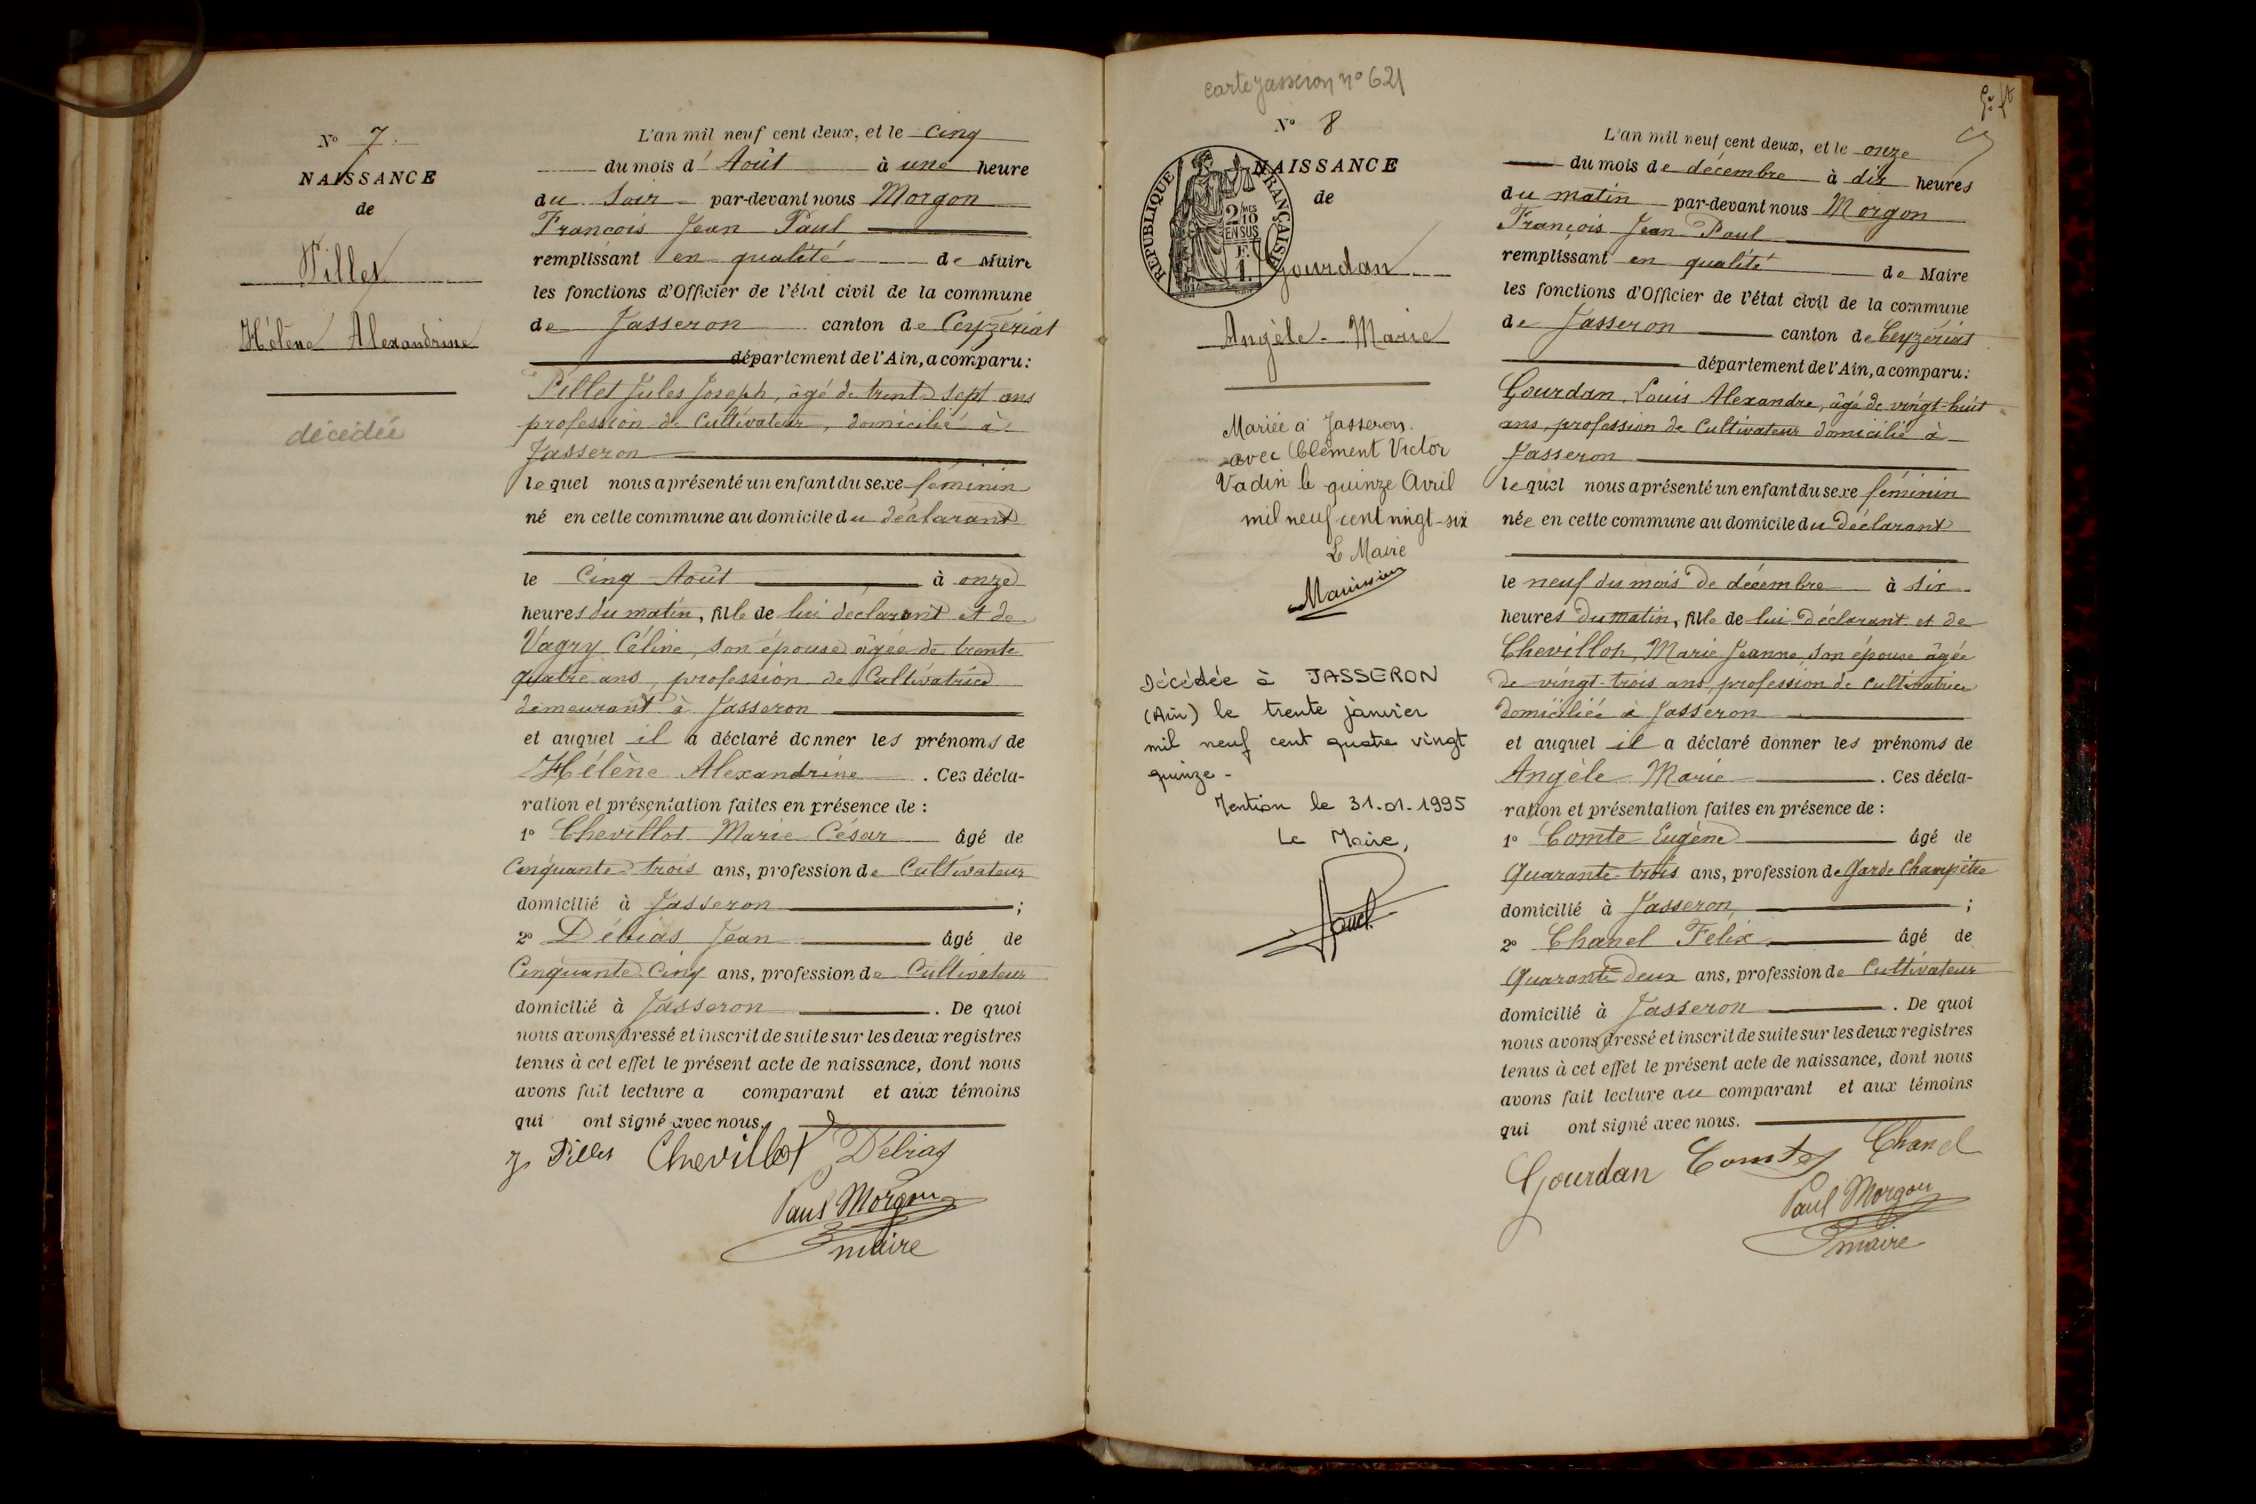 N° 7.
NAISSANCE
de
Pillet
Hélène Alexandrine
décédée
L'an mil neuf cent deux, et le cinq
du mois d' Août à une heure
du soir par-devant nous Morgon
François Jean Paul
remplissant en qualité de Maire
les fonctions d'Officier de l'état civil de la commune
de Jasseron canton de Ceyzériat
département de l'Ain, a comparu :
Pillet Jules Joseph, âgé de trente sept ans
profession de Cultivateur, domicilié à
Jasseron
lequel nous a présenté un enfant du sexe féminin
né en cette commune au domicile du déclarant
le Cinq Août à onze
heures du matin, fille de lui déclarant et de
Vagry Céline, son épouse âgée de trente
quatre ans, profession de Cultivatrice
demeurant à Jasseron
et auquel il a déclaré donner les prénoms de
Hélène Alexandrine . Ces décla-
ration et présentation faites en présence de :
1° Chevillot Marie César âgé de
Cinquante trois ans, profession de Cultivateur
domicilié à Jasseron ;
2° Débias Jean âgé de
Cinquante Cinq ans, profession de Cultivateur
domicilié à Jasseron . De quoi
nous avons dressé et inscrit de suite sur les deux registres
tenus à cet effet le présent acte de naissance, dont nous
avons fait lecture a comparant et aux témoins
qui ont signé avec nous.
J. Pillet Chevillot Débias
Paul Morgon
maire
carte Jasseron n° 621
N° 8
NAISSANCE
de
RÉPUBLIQUE FRANÇAISE
2/10
EN SUS
F.
1.
Gourdan
Angèle Marie
Mariée à Jasseron
avec Clément Victor
Vadin le quinze Avril
mil neuf cent vingt-six
Le Maire
Décédée à JASSERON
(Ain) le trente janvier
mil neuf cent quatre vingt
quinze -
Mention le 31.01.1995
Le Maire,
L'an mil neuf cent deux, et le onze
du mois de décembre à dix heures
du matin par-devant nous Morgon
François Jean Paul
remplissant en qualité de Maire
les fonctions d'Officier de l'état civil de la commune
de Jasseron canton de Ceyzériat
département de l'Ain, a comparu :
Gourdan, Louis Alexandre, âgé de vingt-huit
ans, profession de Cultivateur domicilié à
Jasseron
lequel nous a présenté un enfant du sexe féminin
née en cette commune au domicile du Déclarant
le neuf du mois de décembre à six
heures du matin, fille de lui Déclarant et de
Chevillon, Marie Jeanne, son épouse âgée
de vingt-trois ans, profession de cultivatrice
domiciliée à Jasseron
et auquel il a déclaré donner les prénoms de
Angèle Marie . Ces décla-
ration et présentation faites en présence de :
1° Comte Eugène âgé de
Quarante-trois ans, profession de Garde Champêtre
domicilié à Jasseron, ;
2° Chanel Félix, âgé de
Quarante deux ans, profession de Cultivateur
domicilié à Jasseron . De quoi
nous avons dressé et inscrit de suite sur les deux registres
tenus à cet effet le présent acte de naissance, dont nous
avons fait lecture au comparant et aux témoins
qui ont signé avec nous.
Gourdan Comte Chanel
Paul Morgon
maire